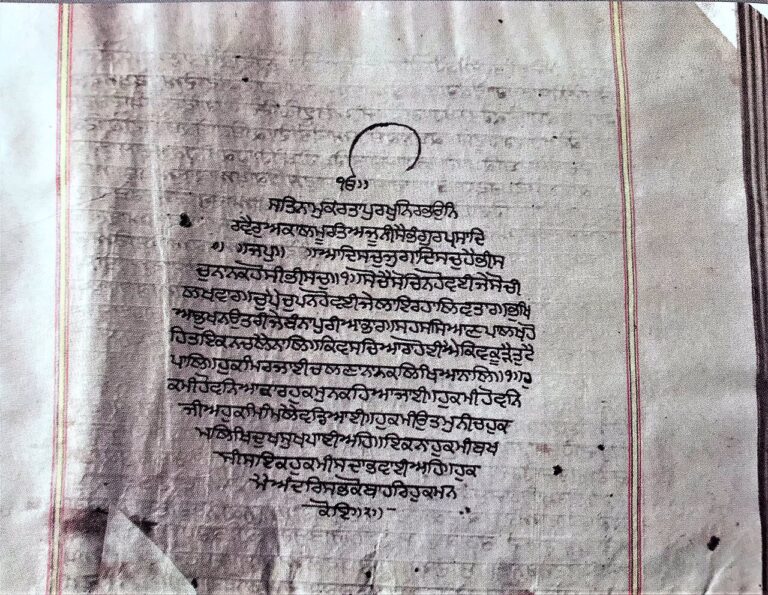 ੴ॥
ਸਤਿਨਾਮੁਕਰਤਾਪੁਰਖੁਨਿਰਭਉਨਿ
ਰਵੈਰੁਅਕਾਲਮੂਰਤਿਅਜੂਨੀਸੈਭੰਗੁਰਪ੍ਰਸਾਦਿ
॥ ॥ਜਪੁ॥ ॥ਆਦਿਸਚੁਜੁਗਾਦਿਸਚੁਹੈਭੀਸ
ਚੁਨਾਨਕਹੋਸੀਭੀਸਚੁ॥੧॥ਸੋਚੈਸੋਚਿਨਹੋਵਈਜੇਸੋਚੀ
ਲਖਵਾਰ॥ਚੁਪੈਚੁਪਨਹੋਵਈਜੇਲਾਇਰਹਾਲਿਵਤਾਰ॥ਭੁਖਿ
ਆਭੁਖਨਉਤਰੀਜੇਬੰਨਾਪੁਰੀਆਭਾਰ॥ਸਹਸਸਿਆਣਪਾਲਖਹੋ
ਹਿਤਇਕਨਚਲੈਨਾਲਿ॥ਕਿਵਸਚਿਆਰਾਹੋਈਐਕਿਵਕੂੜੈਤੁਟੈ
ਪਾਲਿ॥ਹੁਕਮਿਰਜਾਈਚਲਣਾਨਾਨਕਲਿਖਿਆਨਾਲਿ॥੧॥ਹੁ
ਕਮੀਹੋਵਨਿਆਕਾਰਹੁਕਮੁਨਕਹਿਆਜਾਈ॥ਹੁਕਮੀਹੋਵਨਿ
ਜੀਅਹੁਕਮਿਮਿਲੈਵਡਿਆਈ॥ਹੁਕਮੀਉਤਮੁਨੀਚੁਹੁਕ
ਮਿਲਿਖਿਦੁਖਸੁਖਪਾਈਅਹਿ॥ਇਕਨਾਹੁਕਮੀਬਖ
ਸੀਸਇਕਹੁਕਮੀਸਦਾਭਵਾਈਅਹਿ॥ਹੁਕ
ਮੈਅੰਦਰਿਸਭਕੋਬਾਹਰਿਹੁਕਮਨ
ਕੋਇ॥੨॥